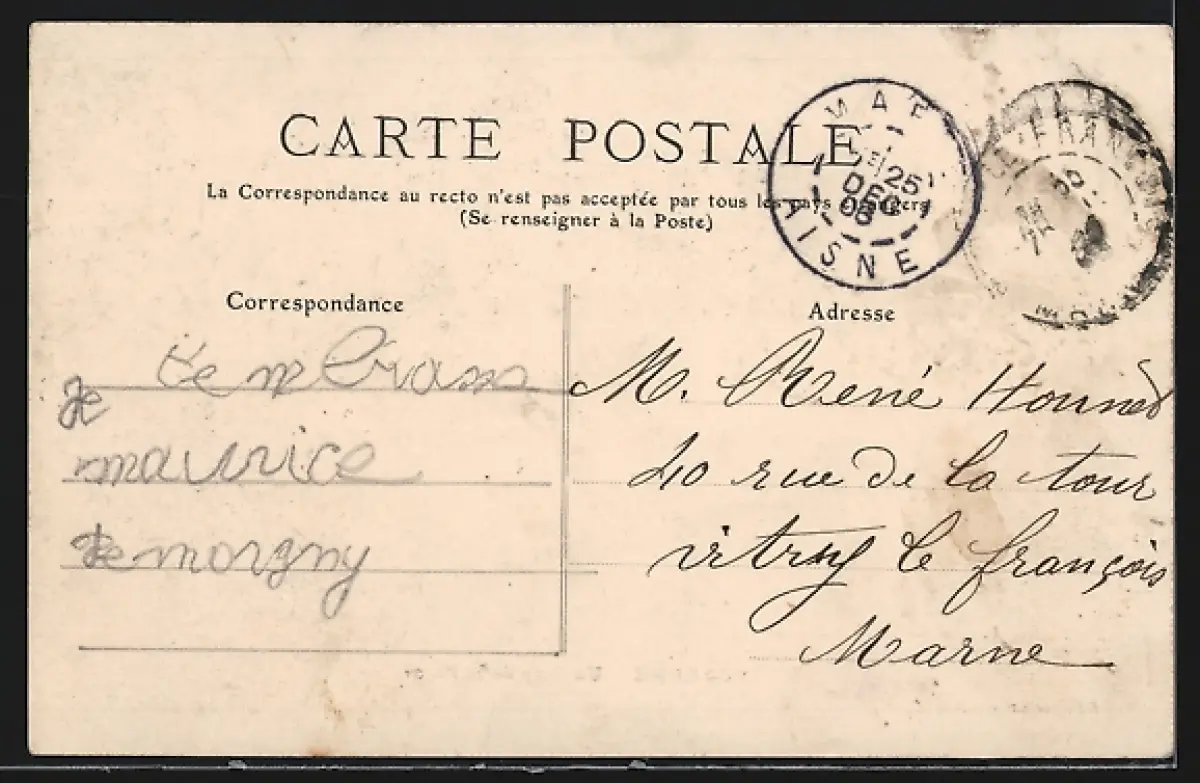 CARTE POSTALE
La Correspondance au recto n'est pas acceptée par tous les pays étrangers
(Se renseigner à la Poste)
25
DEC
08
AISNE
FRANÇOIS
Correspondance
Adresse
Je
maurice
de morgny
M. René
40 rue de la tour
vitry le françois
Marne